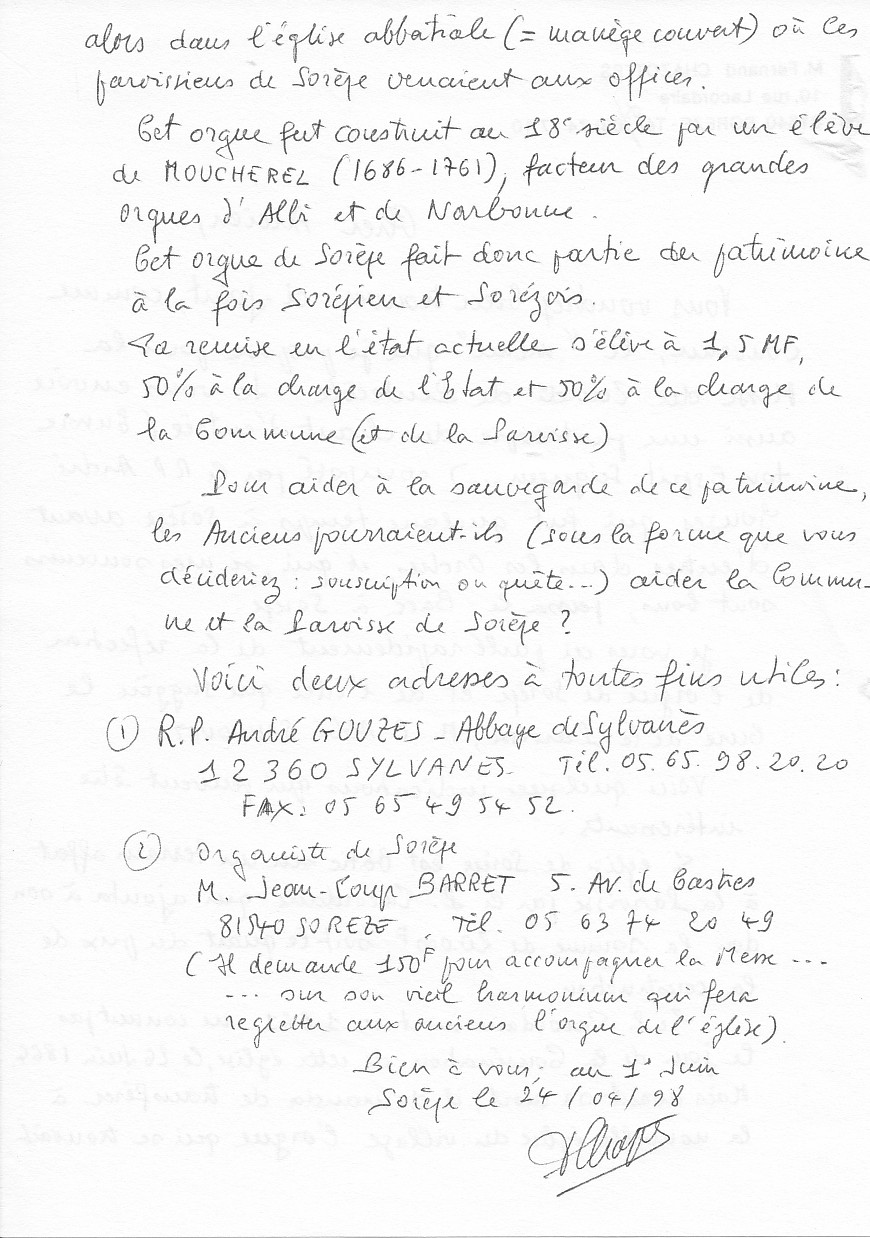 alors dans l'église abbatiale (= manège couvert) où les
paroissiens de Sorèze venaient aux offices.
Cet orgue fut construit au 18e siècle par un élève
de MOUCHEREL (1686-1761), facteur des grandes
orgues d'Albi et de Narbonne.
Cet orgue de Sorèze fait donc partie du patrimoine
à la fois Sorézien et Sorézois.
La remise en l'état actuelle s'élève à 1,5 MF,
50% à la charge de l'Etat et 50% à la charge de
la Commune (et de la Paroisse)
Pour aider à la sauvegarde de ce patrimoine,
les Anciens pourraient-ils (sous la forme que vous
décideriez : souscription ou quête...) aider la Commu-
ne et la Paroisse de Sorèze ?
Voici deux adresses à toutes fins utiles :
① R.P. André GOUZES - Abbaye de Sylvanès
12360 SYLVANES. Tél. 05.65.98.20.20
FAX: 05 65 49 54 52.
② Organiste de Sorèze
M. Jean-Loup BARRET 5. Av. de Castres
81540 SOREZE. Tél. 05 63 74 20 49
(Il demande 150F pour accompagner la Messe ...
... sur son vieil harmonium qui fera
regretter aux anciens l'orgue de l'église).
Bien à vous, au 1er Juin
Sorèze le 24/04/98